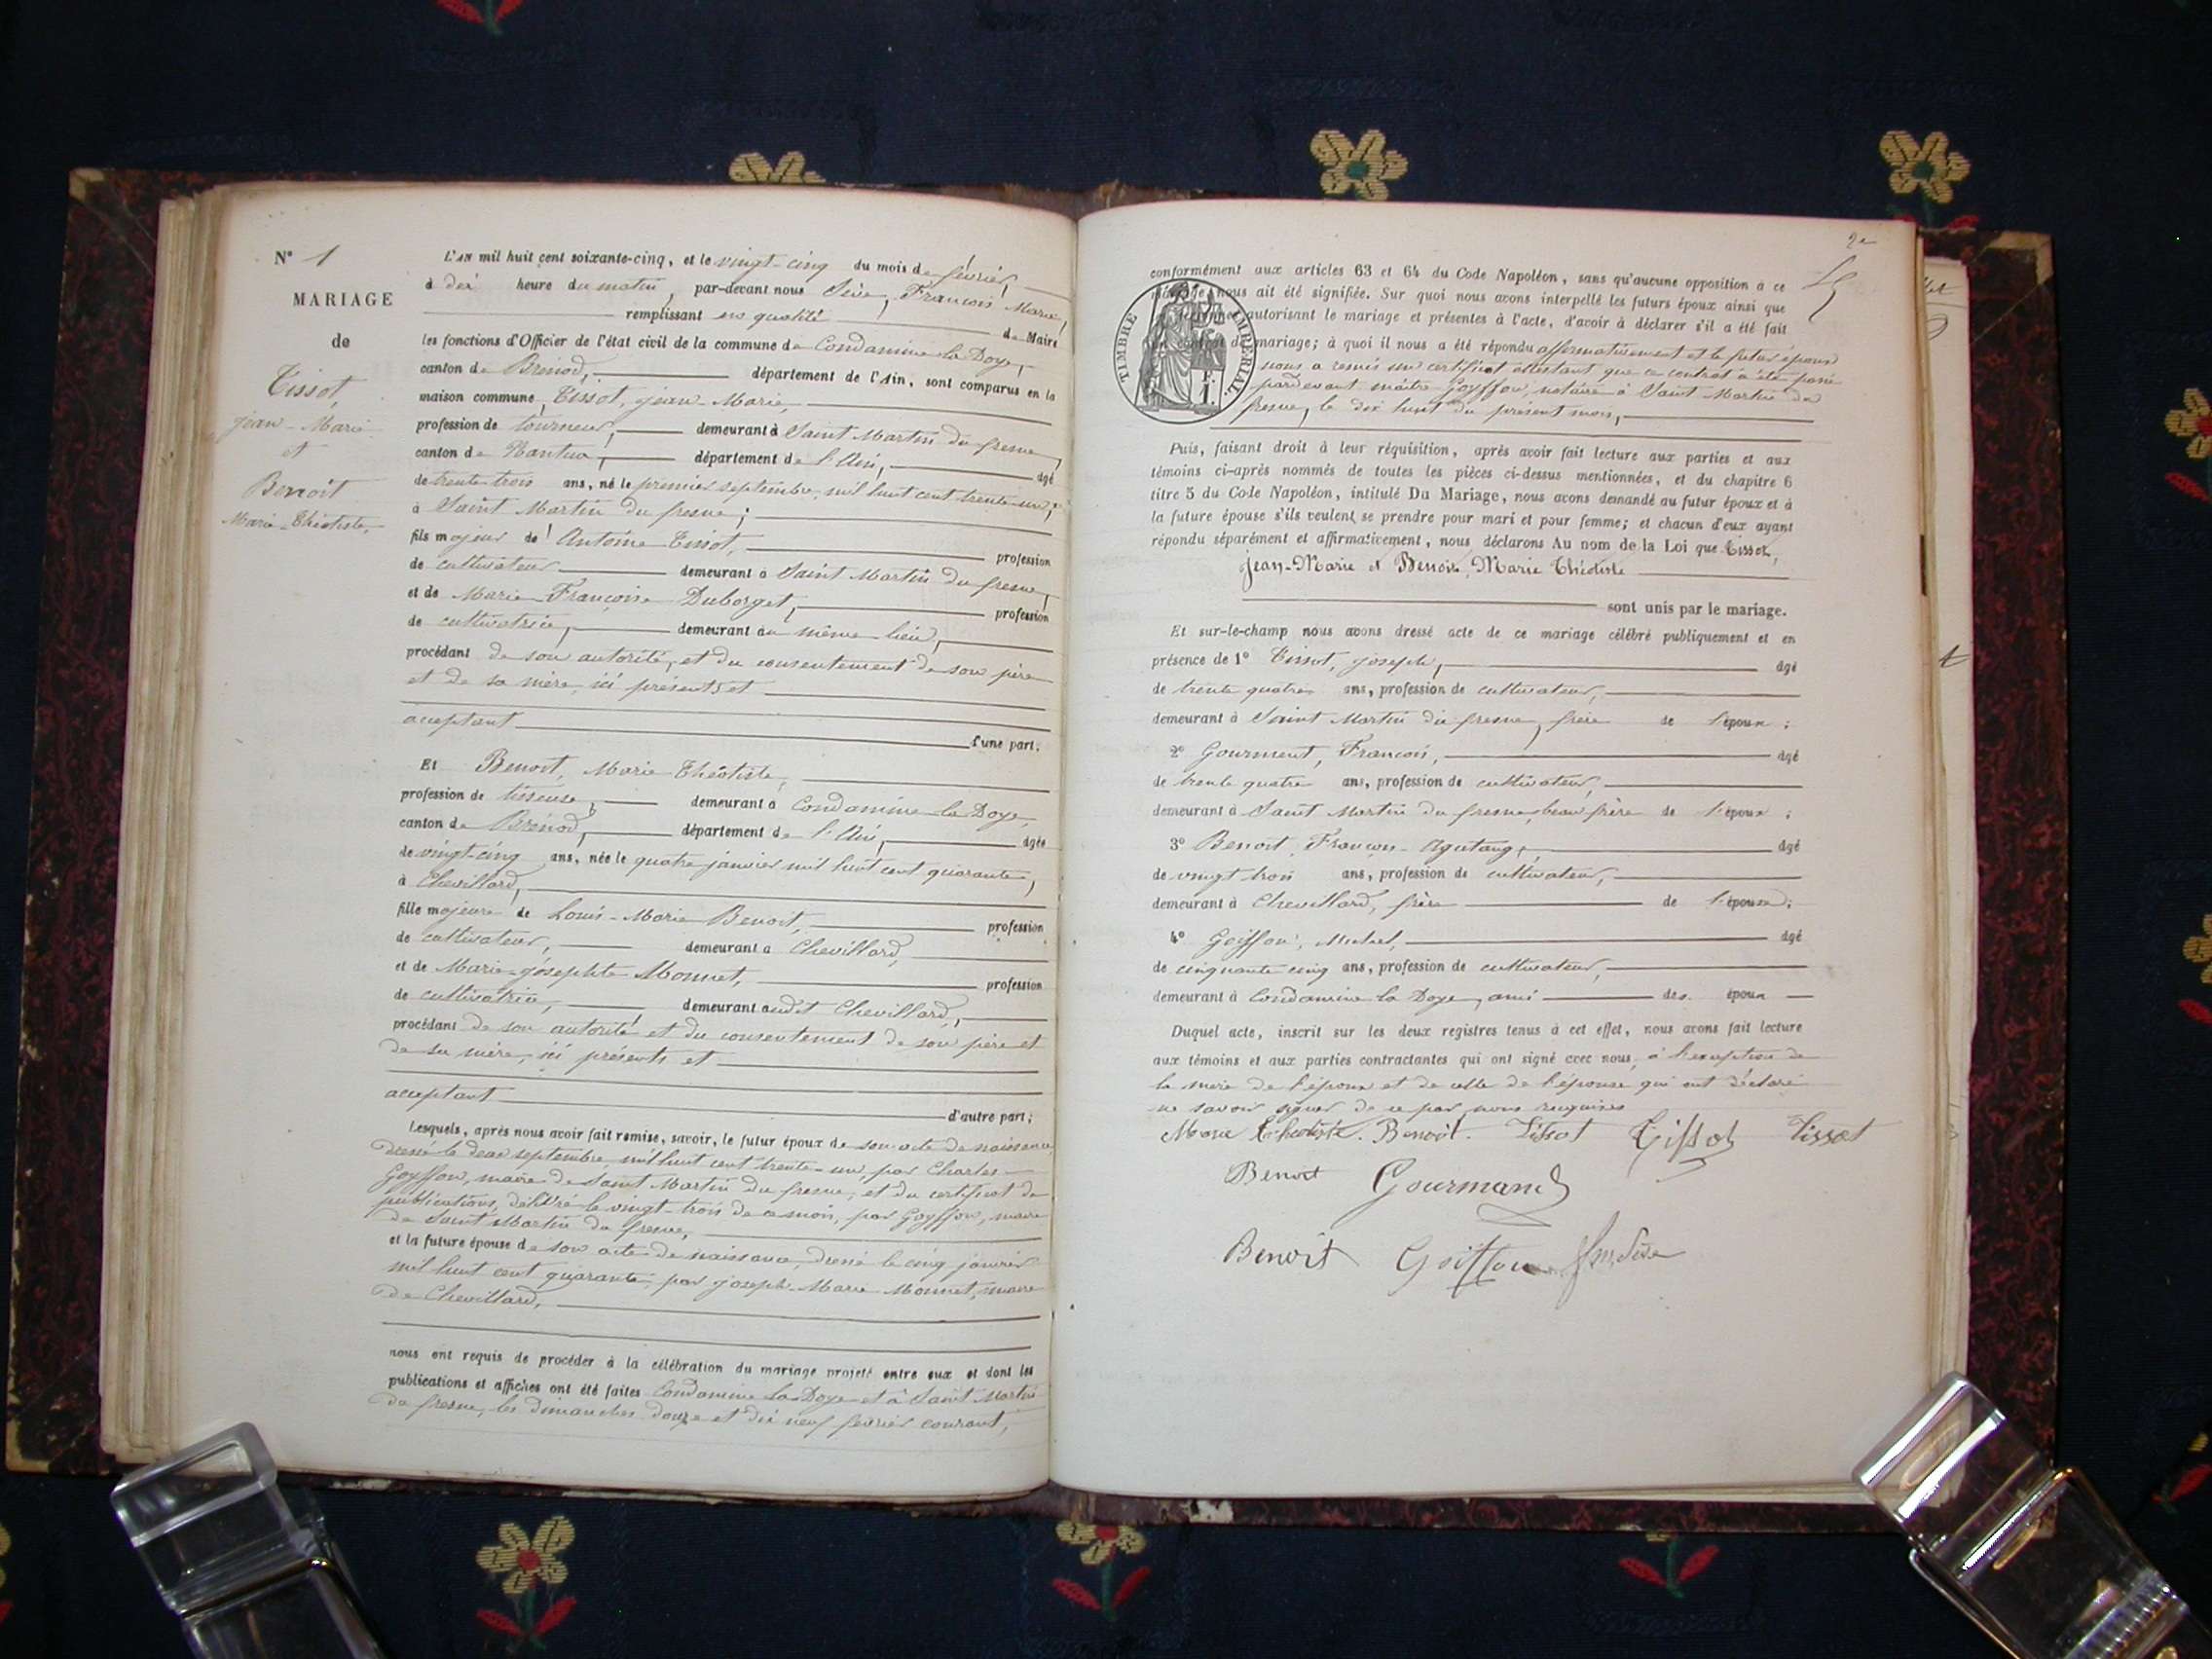 N° 1
MARIAGE
de
Tissot,
jean-Marie
et
Benoit
Marie-Théotiste,
L'AN mil huit cent soixante-cinq, et le vingt-cinq du mois de février,
à dix heure du matin, par-devant nous Sève, François Marie,
remplissant en qualité de Maire
les fonctions d'Officier de l'état civil de la commune de Condamine la Doye,
canton de Brénod, département de l'Ain, sont comparus en la
maison commune Tissot, jean-Marie,
profession de tourneur, demeurant à Saint Martin du fresne,
canton de Nantua, département de l'Ain, âgé
de trente trois ans, né le premier septembre, mil huit cent trente-un,
à Saint Martin du fresne;
fils majeur de Antoine Tissot, profession
de cultivateur demeurant à Saint Martin du fresne,
et de Marie-Françoise Duborget, profession
de cultivatrice, demeurant au même lieu,
procédant de son autorité, et du consentement de son père
et de sa mère, ici présents et
acceptant
d'une part;
Et Benoit, Marie Théotiste,
profession de tisseuse, demeurant à Condamine la Doye,
canton de Brénod, département de l'Ain, âgée
de vingt-cinq ans, née le quatre janvier mil huit cent quarante,
à Chevillard,
fille majeure de Louis-Marie Benoit, profession
de cultivateur, demeurant à Chevillard,
et de Marie-josephte Monnet, profession
de cultivatrice, demeurant audit Chevillard,
procédant de son autorité et du consentement de son père et
de sa mère, ici présents et
acceptant
d'autre part;
Lesquels, après nous avoir fait remise, savoir, le futur époux de son acte de naissance
dressé le deux septembre mil huit cent trente-un, par Charles
Goyffon, maire de Saint Martin du fresne, et du certificat de
publications, délivré le vingt-trois de ce mois, par Goyffon, maire
de Saint Martin du fresne,
et la future épouse de son acte de naissance, dressé le cinq janvier
mil huit cent quarante, par joseph-Marie Monnet, maire
de Chevillard,
nous ont requis de procéder à la célébration du mariage projeté entre eux et dont les
publications et affiches ont été faites Condamine la Doye et à Saint Martin
du fresne, les dimanches douze et dix neuf février courant,
2e
conformément aux articles 63 et 64 du Code Napoléon, sans qu'aucune opposition à ce
mariage nous ait été signifiée. Sur quoi nous avons interpellé les futurs époux ainsi que
autorisant le mariage et présentes à l'acte, d'avoir à déclarer s'il a été fait
mariage; à quoi il nous a été répondu affirmativement et le futur époux
nous a remis un certificat attestant que ce contrat a été passé
pardevant maître Goyffon, notaire à Saint Martin du
fresne, le dix huit du présent mois,
TIMBRE IMPÉRIAL.
1 F.
Puis, faisant droit à leur réquisition, après avoir fait lecture aux parties et aux
témoins ci-après nommés de toutes les pièces ci-dessus mentionnées, et du chapitre 6
titre 5 du Code Napoléon, intitulé Du Mariage, nous avons demandé au futur époux et à
la future épouse s'ils veulent se prendre pour mari et pour femme; et chacun d'eux ayant
répondu séparément et affirmativement, nous déclarons Au nom de la Loi que Tissot,
Jean-Marie et Benoit, Marie Théotiste
sont unis par le mariage.
Et sur-le-champ nous avons dressé acte de ce mariage célébré publiquement et en
présence de 1° Tissot, joseph, âgé
de trente quatre ans, profession de cultivateur,
demeurant à Saint Martin du fresne, frère de l'époux;
2° Gourment, François, âgé
de trente quatre ans, profession de cultivateur,
demeurant à Saint Martin du fresne, beau frère de l'époux;
3° Benoit, François- âgé
de vingt trois ans, profession de cultivateur,
demeurant à Chevillard, frère de l'épouse;
4° Goiffon, Michel, âgé
de cinquante cinq ans, profession de cultivateur,
demeurant à Condamine la Doye, ami des époux
Duquel acte, inscrit sur les deux registres tenus à cet effet, nous avons fait lecture
aux témoins et aux parties contractantes qui ont signé avec nous, à l'exception de
la mère de l'époux et de celle de l'épouse qui ont déclaré
ne savoir signer de ce par nous requises
Marie Théotiste. Benoit. Tissot Tissot Tissot
Benoit Gourmand
Benoit Goiffon fm Sève